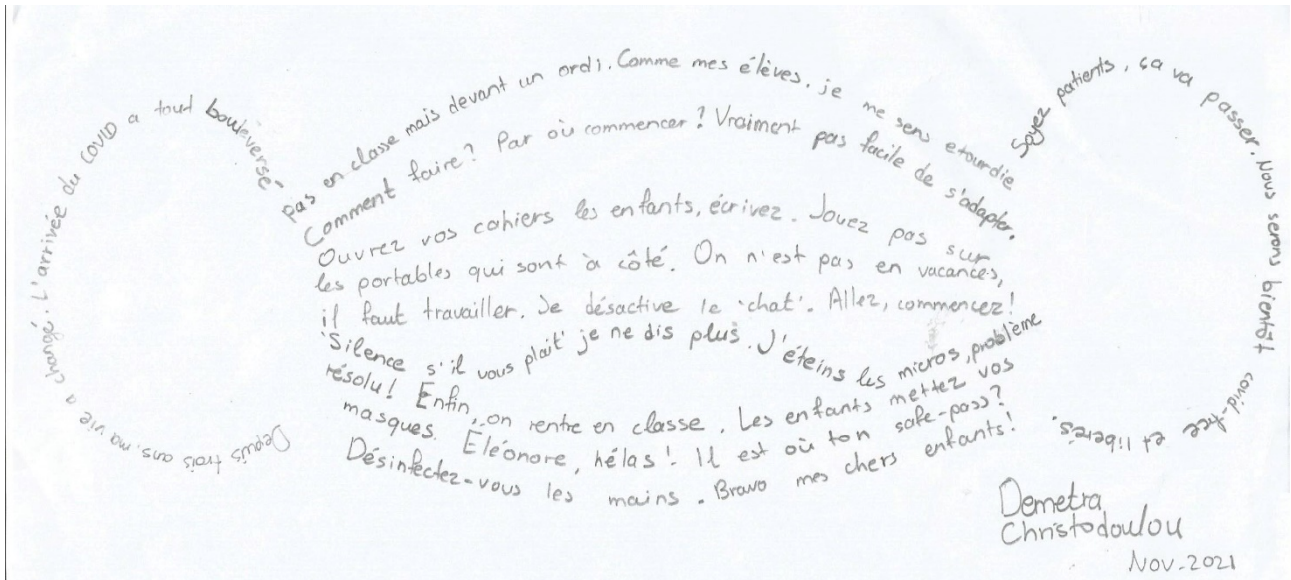 Depuis trois ans, ma vie a changé. L'arrivée du COVID a tout bouleversé
pas en classe mais devant un ordi. Comme mes élèves, je me sens etourdie
Comment faire? Par où commencer? Vraiment pas facile de s'adapter.
Ouvrez vos cahiers les enfants, écrivez. Jouez pas sur
les portables qui sont à côté. On n'est pas en vacances,
il faut travailler. Je désactive le 'chat'. Allez, commencez!
'Silence s'il vous plait' je ne dis plus. J'éteins les micros, problème
résolu! Enfin, on rentre en classe. Les enfants mettez vos
masques. Eléonore, hélas! Il est où ton safe-pass?
Désinfectez-vous les mains. Bravo mes chers enfants!
Soyez patients, ça va passer. Nous serons bientôt covid-free et libérés.
Demetra
Christodoulou
Nov-2021